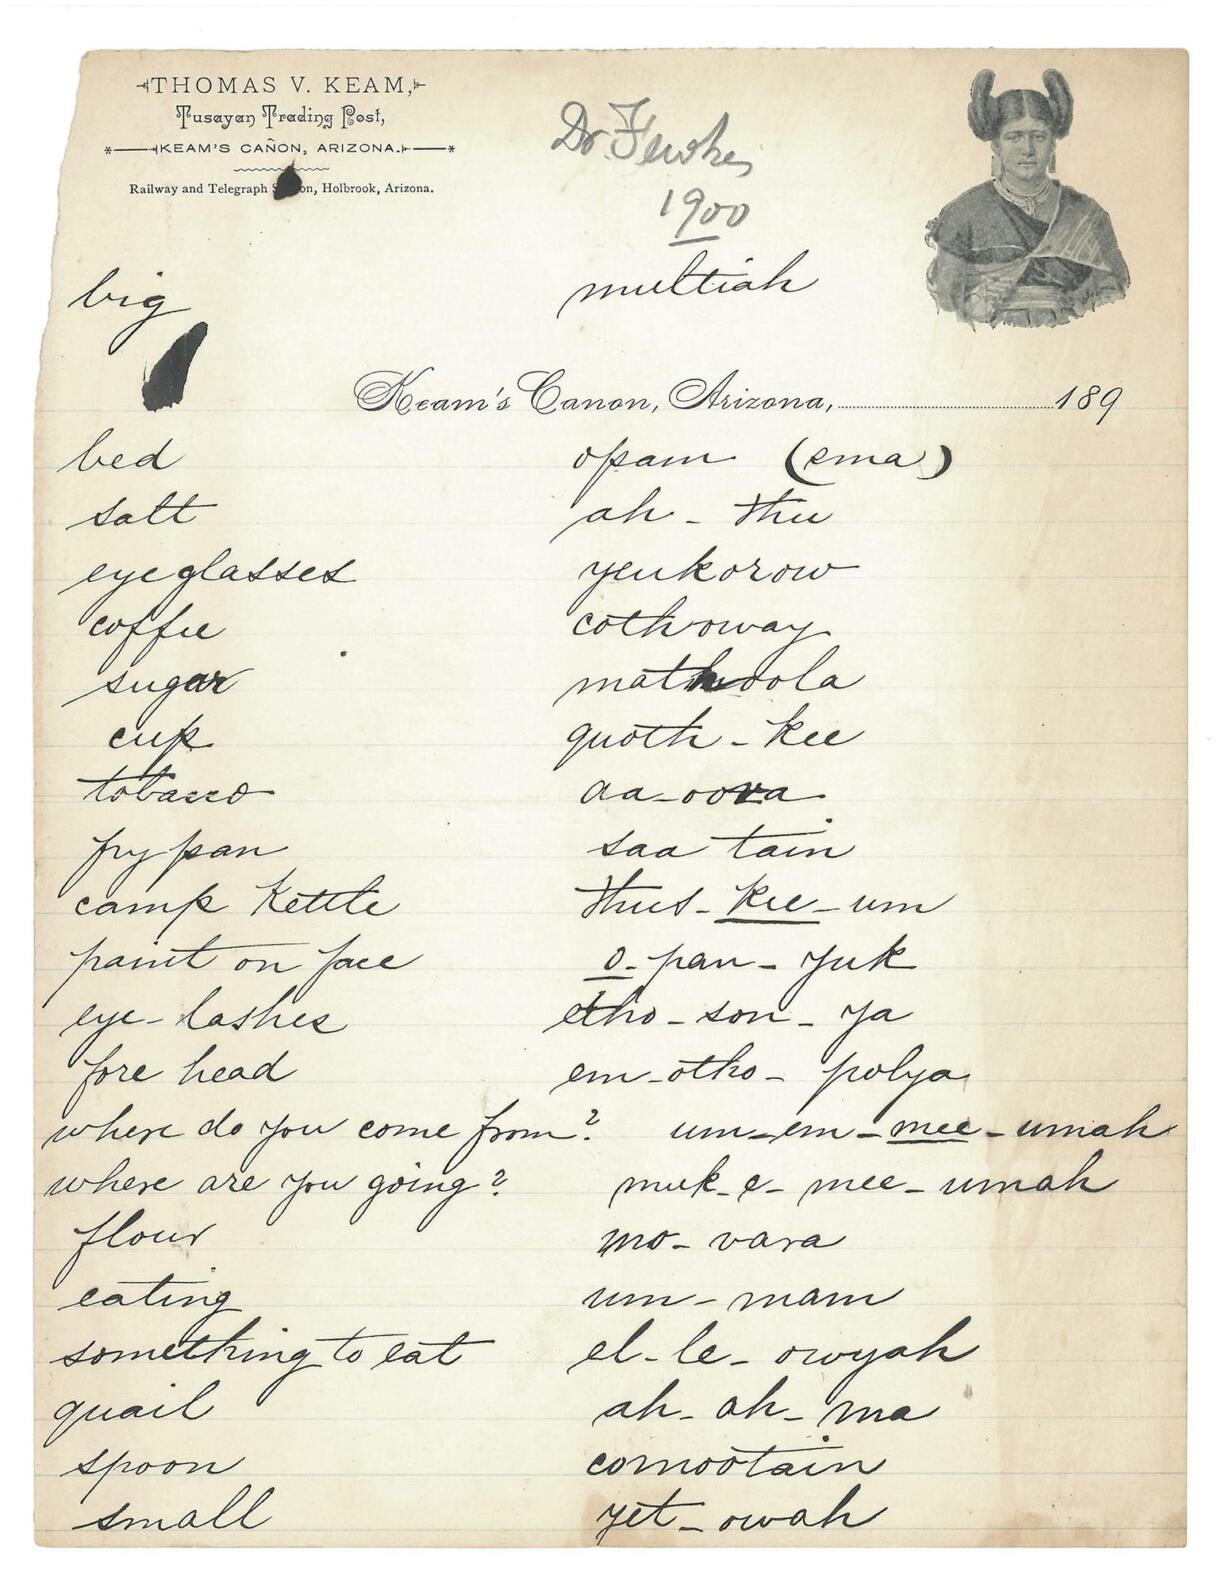 THOMAS V. KEAM,
Tusayan Trading Post,
KEAM'S CAÑON, ARIZONA.
Railway and Telegraph on, Holbrook, Arizona.
Dr. Fewkes
1900
big multiah
Keam's Canon, Arizona, 189
bed opam (ema)
salt ah - thu
eyeglasses yeukorow
coffee cothoway
sugar mathoola
cup quoth - kee
tobacco aa - oova
fry pan saa tain
camp kettle thus - kee - um
paint on face o - pan - yuk
eye - lashes etho - son - ya
fore head em - otho - polya
where do you come from? um - em - mee - umah
where are you going? muk - e - mee - umah
flour mo - vara
eating um - mam
something to eat el - le - owyah
quail ah - ah - ma
spoon comootain
small yet - owah